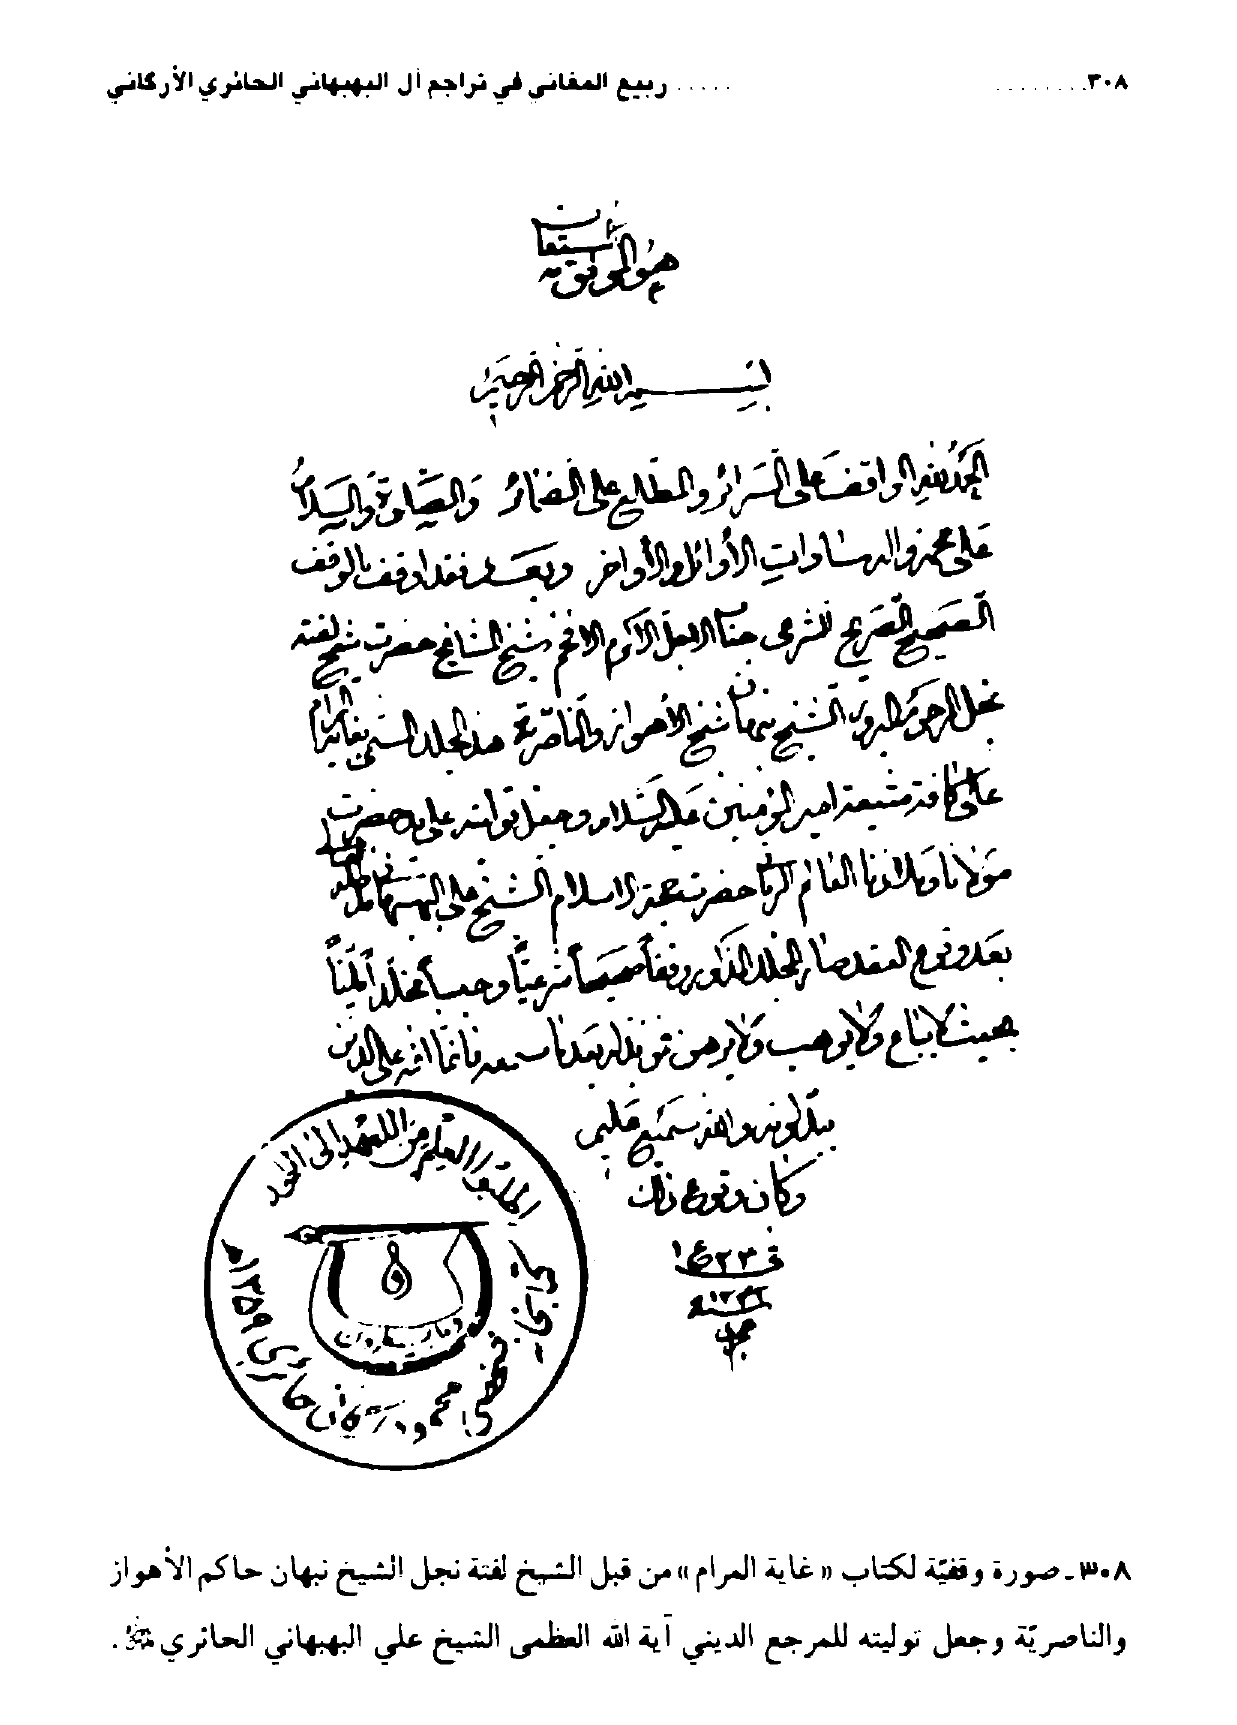 ٣٠٨ ........ ..... ربيع المغاني في تراجم آل البهبهاني الحائري الأركاني
هو الموفق
المستعان
بسم الله الرحمن الرحيم
الحمد لله الواقف على السرائر والمطلع على الضمائر والصلاة والسلام
على محمد وآله سادات الأوائل والأواخر وبعد فقد اوقف بالوقف
الصحيح الصريح الشرعي جناب الاجل الاكرم الافخم شيخ المشايخ حضرت شيخ لفته
نجل المرحوم المبرور الشيخ نبهان شيخ الأهواز والناصرية هذا المجلد المسمى بغاية المرام
على كافة شيعة امير المؤمنين عليه السلام وجعل توليته على يد حضرت
مولانا وملاذنا العالم الرباني حضرت حجة الاسلام الشيخ علي البهبهاني
بعد وقوع العقد صار المجلد المذكور وقفاً صحيحاً شرعيّاً وحبساً مخلداً
بحيث لا يباع ولا يوهب ولا يرهن فمن بدله بعد ما سمعه فانما اثمه على الذين
يبدلونه والله سميع عليم
وكان وقوع ذلك
في ٢٣ ع١
سنه
اطلبوا العلم من المهد إلى اللحد
محمود حائري ١٣٥٩هـ
٣٠٨ـ صورة وقفيّة لكتاب «غاية المرام» من قبل الشيخ لفتة نجل الشيخ نبهان حاكم الأهواز
والناصريّة وجعل توليته للمرجع الديني آية الله العظمى الشيخ علي البهبهاني الحائري ﷿.